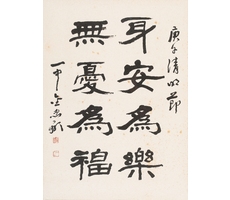 庚午清明節
身安為樂
無憂為福
一中